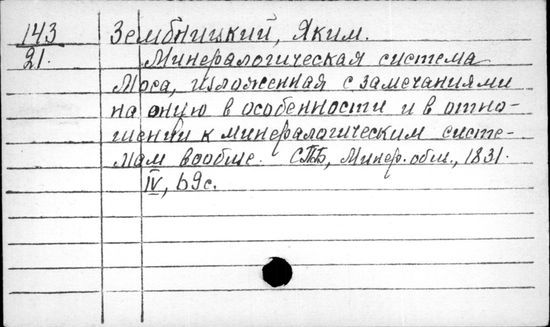 143 Зембницкий, Яким.
21. Минералогическая система
Моса, изложенная с замечаниями
на оную в особенности и в отно-
шении к минералогическим систе-
мам вообще. СПБ, Минер. общ., 1831.
IV, 69с.